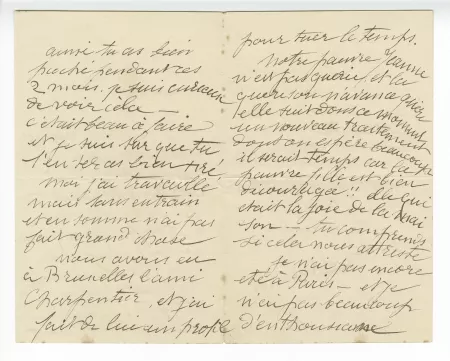 ainsi tu as bien
pioché pendant ces
2 mois. je suis curieuse
de voir cela —
c'était beau à faire
et je suis sûr que tu
t'en seras bien tiré,
moi j'ai travaillé
mais sans entrain
et en somme n'ai pas
fait grand chose
nous avons eu
à Bruxelles l'ami
Charpentier, et j'ai
fait de lui un profil
pour tuer le temps.
Notre pauvre Jeanne
n'est pas guérie, et la
guérison n'avance guère
elle suit dans ce moment
un nouveau traitement
dont on espère beaucoup
il serait temps car la
pauvre fille est bien
découragée!! elle qui
était la joie de la mai
son — tu comprends
si cela nous attriste
je n'ai pas encore
été à Paris — et je
n'ai pas beaucoup
d'enthousiasme